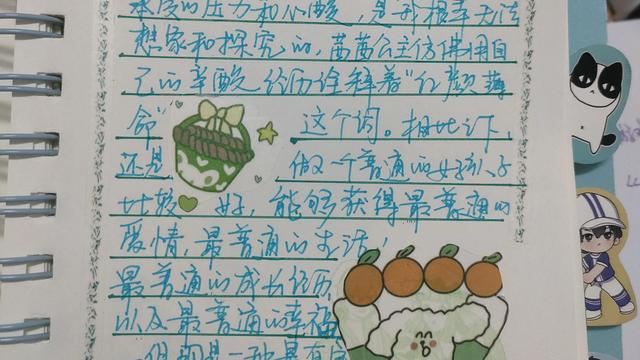 承受的压力和心酸，是我根本无法
想象和探究的，茜茜公主仿佛用自
己的辛酸经历诠释着“红颜薄
命”这个词。相比下，
还是做一个普通的女孩子
比较好，能够获得最普通的
爱情，最普通的生活，
最普通的成长经历
以及最普通的幸福